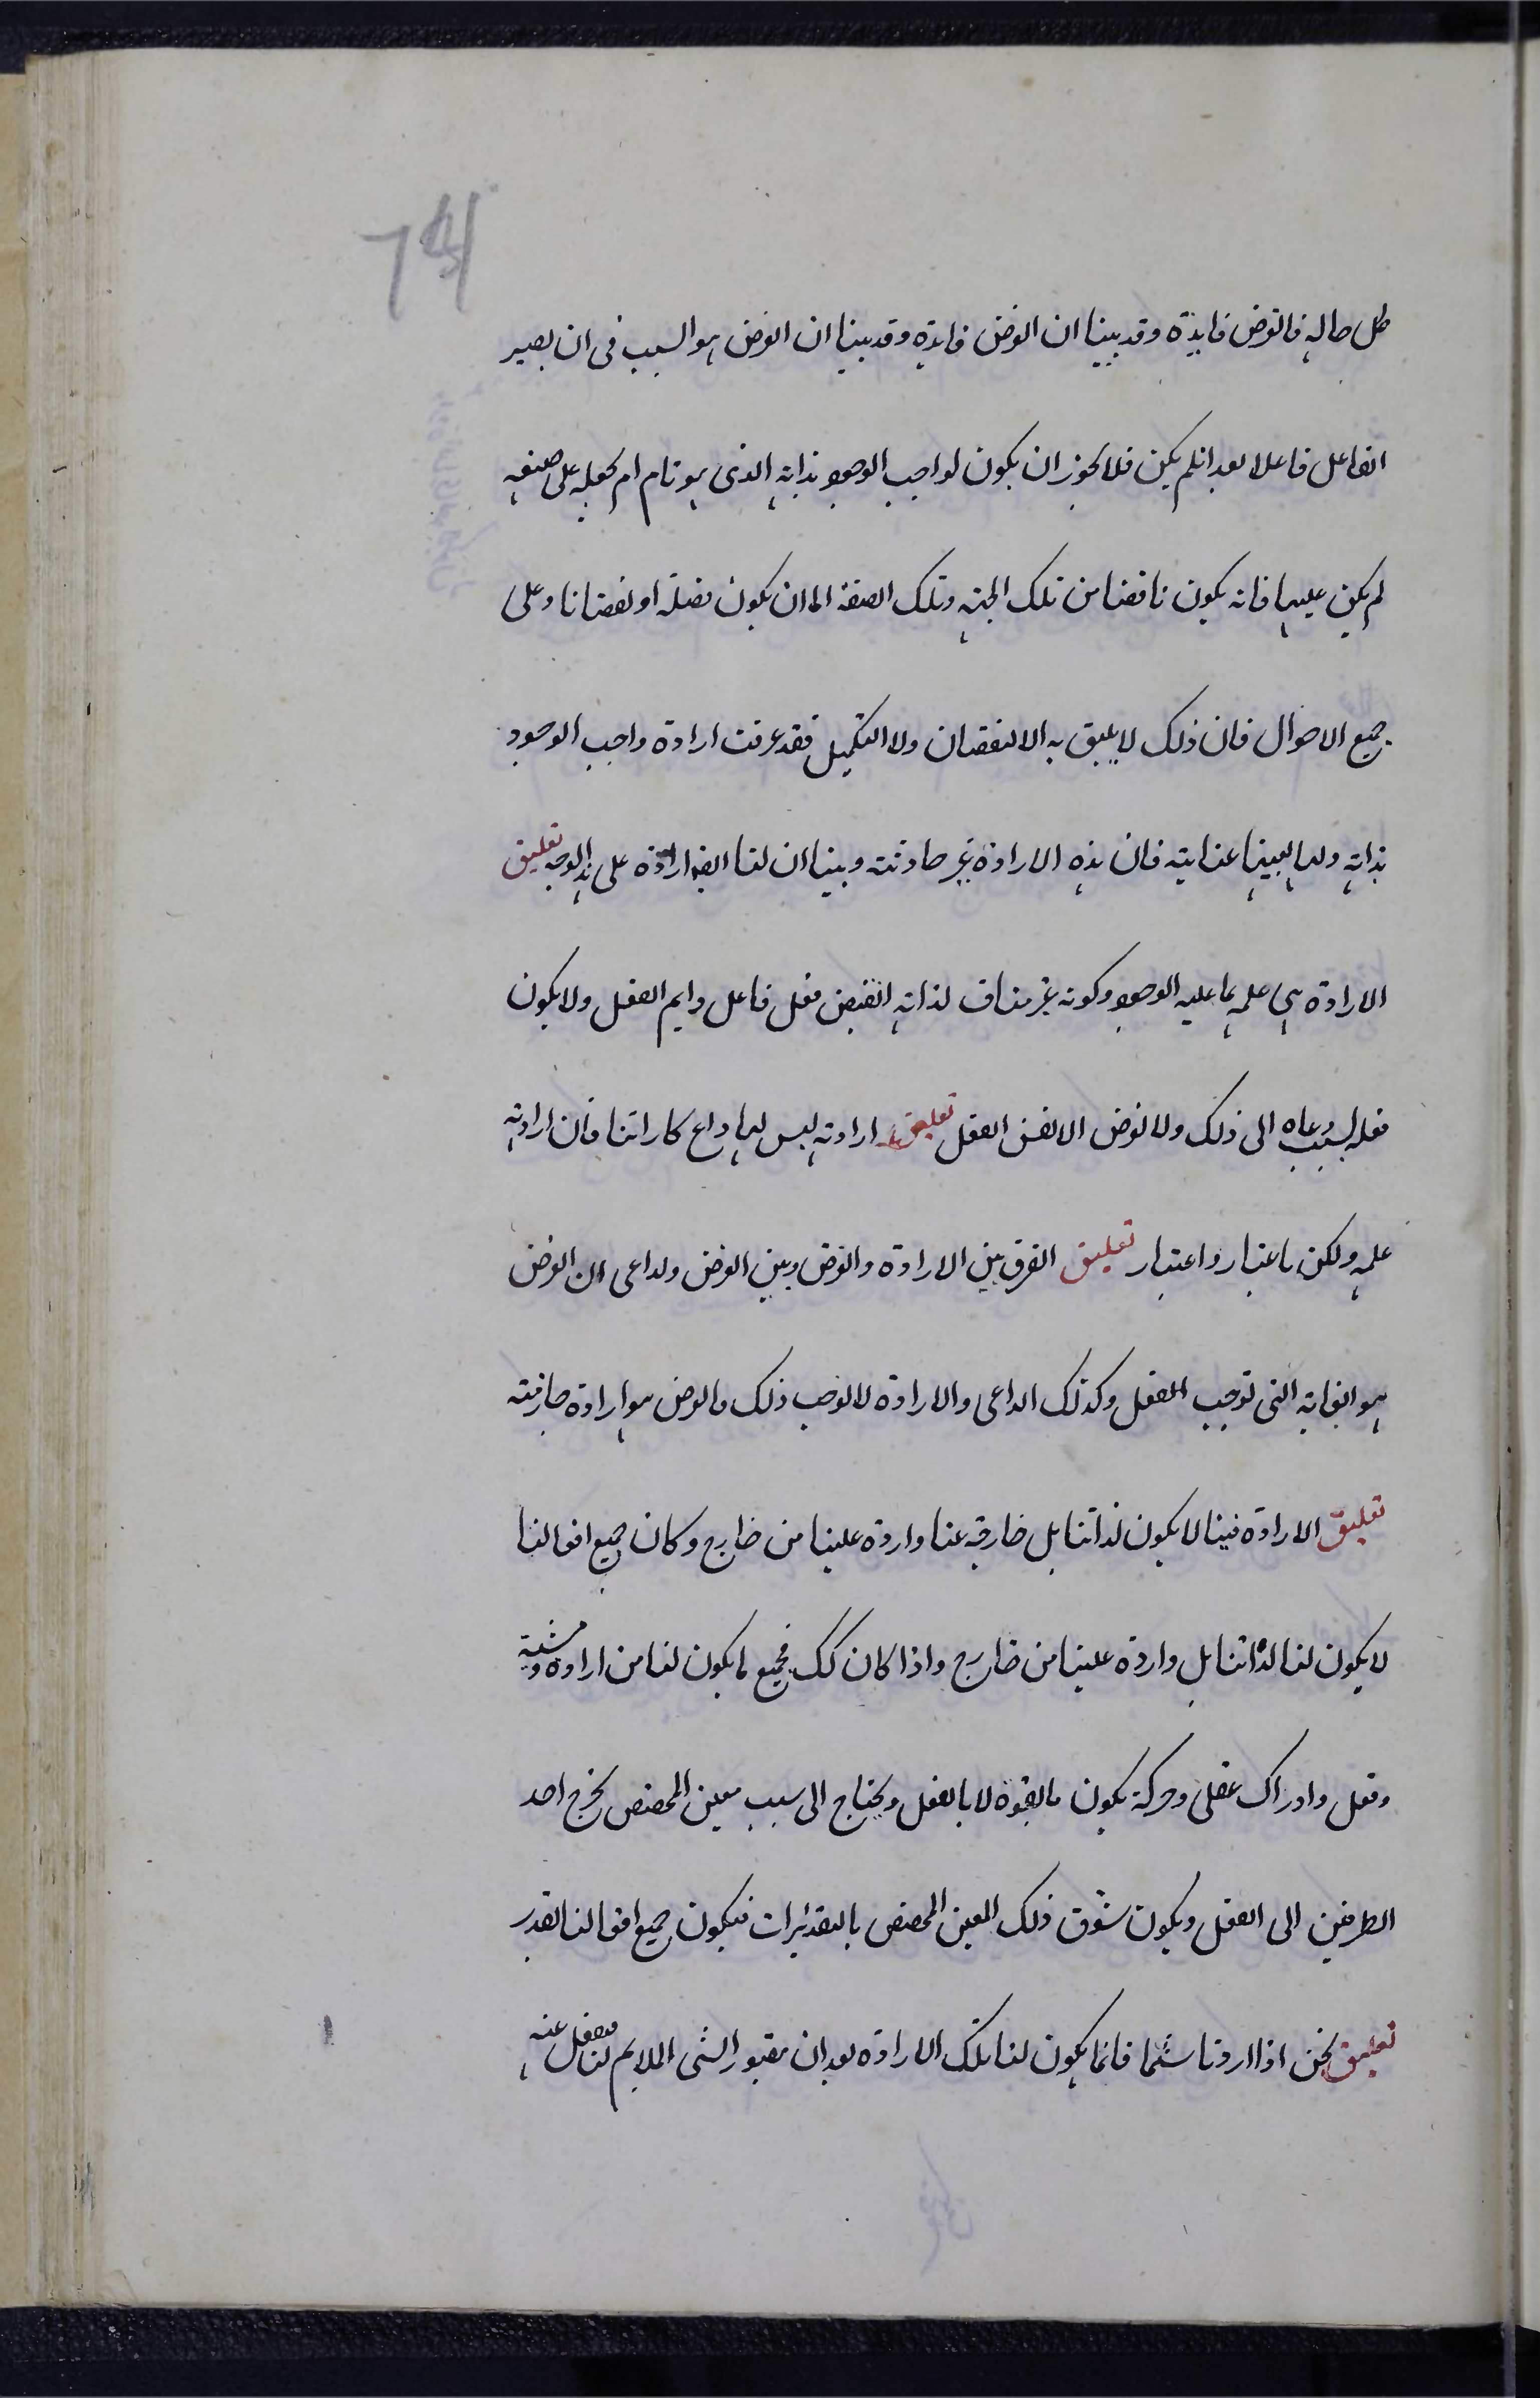 كل حاله فالغرض فايدة وقد بينا ان الغرض فايدة وقد بينا ان الغرض هو السبب فى ان يصير
الفاعل فاعلا بعد ان لم يكن فلا يجوز ان يكون لواجب الوجود بذاته الذى هو تام امر يجعله على صفه
لم يكن عليها فانه يكون ناقصا من تلك الجهة وتلك الصفة اما ان يكون فضيلة او نقصانا وعلى
جميع الاحوال فان ذلك لا يليق به الا النقصان ولا التكميل فقد عرفت ارادة واجب الوجود
بذاته وانها بعينها عنايته فان هذه الارادة غير حادثة وبينا ان لنا ايضا ارادة على هذا الوجه تعليق
الارادة هى علمه بما عليه الوجود وكونه غير مناف لذاته الفيض فعل فاعل دايم الفعل ولا يكون
فعله بسبب دعاه الى ذلك ولا لغرض الا نفس الفعل تعليق ارادته ليس لها داع كاراتنا فان ارادته
علمه ولكن باعتبار واعتبار تعليق الفرق بين الارادة والغرض وبين الغرض ولداعى ان الغرض
هو الغاية التى توجب الفعل وكذلك الداعى والارادة لا توجب ذلك والغرض هو ارادة جازمة
تعليق الارادة فينا لا يكون لذاتنا بل خارجة عنا واردة علينا من خارج وكان جميع افعالنا
لا يكون لنا لذاتنا بل واردة علينا من خارج واذا كان كك فجميع ما يكون لنا من ارادة ومشية
وفعل وادراك عقلى وحركة يكون بالقوة لا بالفعل ويحتاج الى سبب معين المخصص يخرج احد
الطرفين الى الفعل ويكون سوق ذلك المعين المخصص بالتقديرات فيكون جميع افعالنا بقدر
تعليق نحن اذا اردنا شيئا فانما يكون لنا تلك الارادة بعد ان يتصور الشى الملايم لنا فينفعل عنه